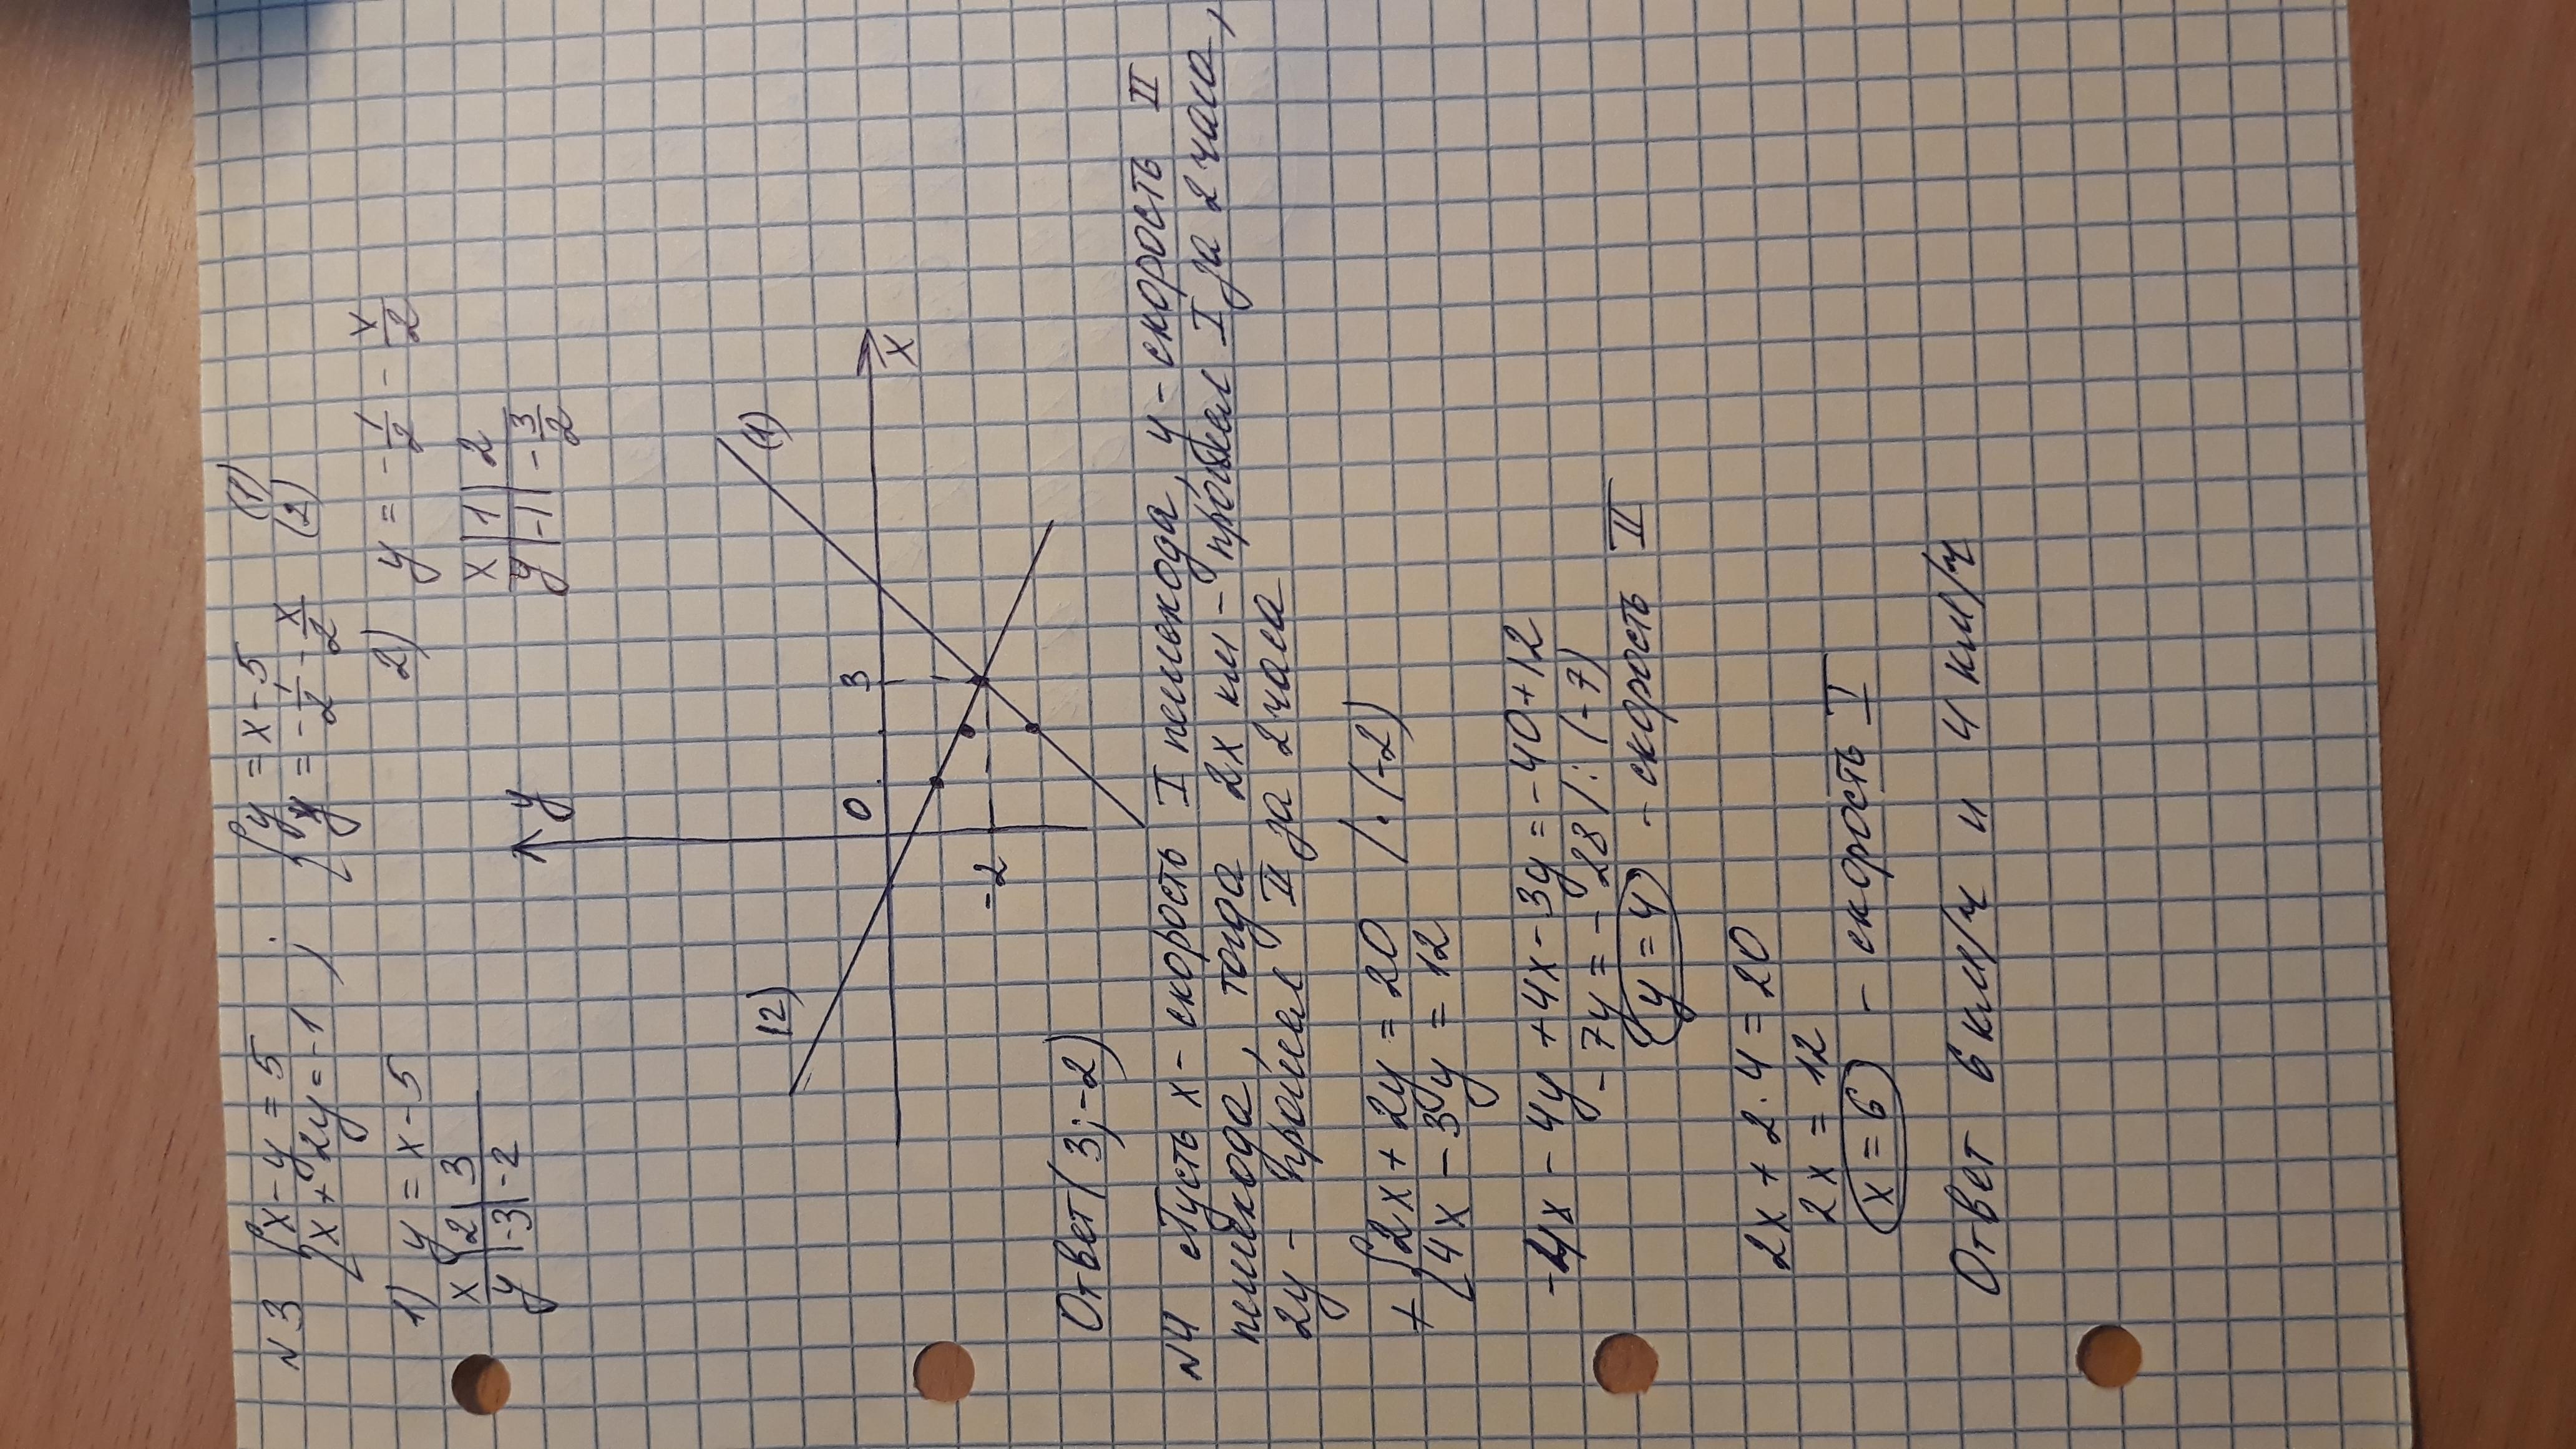 N3 { x - y = 5 ; { y = x - 5 (1)
x + 2y = -1 y = -1/2 - x/2 (2)
1) y = x - 5 2) y = -1/2 - x/2
x | 2 | 3 x | 1 | 2
y | -3 | -2 y | -1 | -3/2
y
(2) (1)
0 3 x
-2
Ответ (3; -2)
N4 Пусть x - скорость I пешехода, y - скорость II
пешехода, тогда 2x км - прошел I за 2 часа,
2y - прошел II за 2 часа
+ { 2x + 2y = 20 /·(-2)
4x - 3y = 12
-4x - 4y + 4x - 3y = -40 + 12
- 7y = - 28 /:(-7)
y = 4 - скорость II
2x + 2·4 = 20
2x = 12
x = 6 - скорость I
Ответ 6 км/ч и 4 км/ч